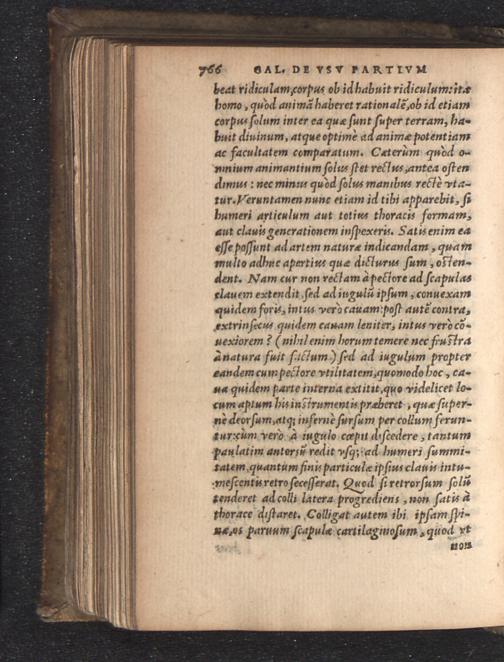 766 GAL. DE VSV PARTIVM
beat ridiculam, corpus ob id habuit ridiculum: ita
homo, quòd animā haberet rationalē, ob id etiam
corpus solum inter ea quæ sunt super terram, ha-
buit diuinum, atque optimè ad animæ potentiam
ac facultatem comparatum. Cæterùm quòd o-
mnium animantium solus stet rectus, antea osten
dimus: nec minus quòd solus manibus rectè vta-
tur. Veruntamen nunc etiam id tibi apparebit, si
humeri articulum aut totius thoracis formam,
aut clauis generationem inspexeris. Satis enim ea
esse possunt ad artem naturæ indicandam, quam
multo adhuc apertius quæ dicturus sum, osten-
dent. Nam cur non rectam à pectore ad scapulas
clauem extendit, sed ad iugulū ipsum, conuexam
quidem foris, intus verò cauam: post autē contra,
extrinsecus quidem cauam leniter, intus verò cō-
uexiorem? (nihil enim horum temere nec frustra
à natura fuit factum.) sed ad iugulum propter
eandem cum pectore vtilitatem, quomodo hoc, ca-
ua quidem parte interna extitit, quo videlicet lo-
cum aptum his instrumentis præberet, quæ super-
nè deorsum, atq; infernè sursum per collum ferun-
tur: cùm verò à iugulo cœpit discedere, tantum
paulatim antorsū redit vsq; ad humeri summi-
tatem, quantum finis particulæ ipsius clauis intu-
mescentis retro secesserat. Quod si retrorsum solū
tenderet ad colli latera progrediens, non satis à
thorace distaret. Colligat autem ibi ipsam spi-
næ, os paruum scapulæ cartilaginosum, quod vt
non